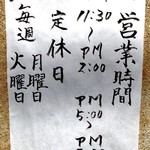 営業時間
11:30
~
PM
2:00
PM
5:00
~
P
定休日
毎週
月曜日
火曜日